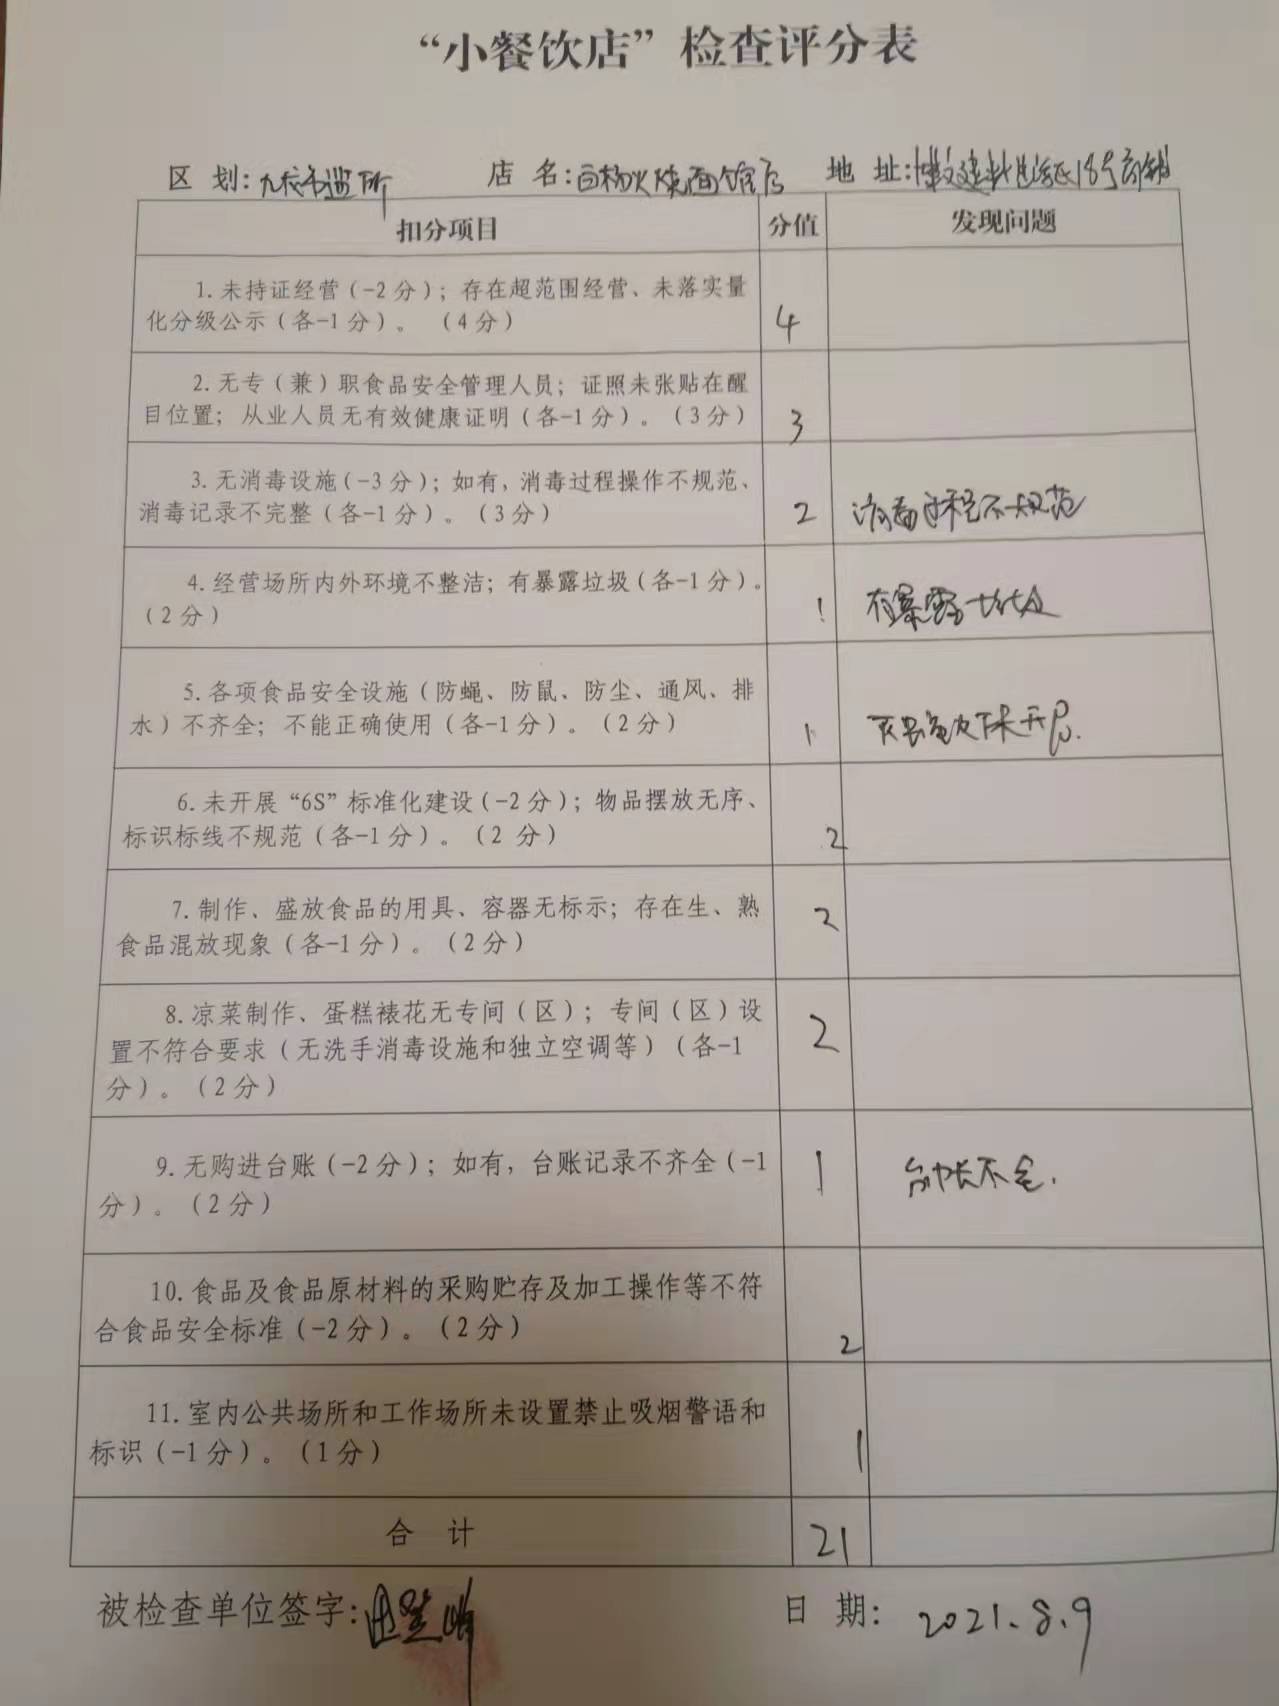 “小餐饮店”检查评分表
区 划: 市监所 店 名: 面馆店 地 址: 18号商铺
扣分项目 分值 发现问题
1.未持证经营(-2分);存在超范围经营、未落实量
化分级公示(各-1分)。 (4分) 4
2.无专(兼)职食品安全管理人员;证照未张贴在醒
目位置;从业人员无有效健康证明(各-1分)。(3分) 3
3.无消毒设施(-3分);如有,消毒过程操作不规范、
消毒记录不完整(各-1分)。(3分) 2 消毒过程不规范
4.经营场所内外环境不整洁;有暴露垃圾(各-1分)。
(2分) 1 有暴露垃圾
5.各项食品安全设施(防蝇、防鼠、防尘、通风、排
水)不齐全;不能正确使用(各-1分)。(2分) 1 未开启.
6.未开展“6S”标准化建设(-2分);物品摆放无序、
标识标线不规范(各-1分)。(2 分) 2
7.制作、盛放食品的用具、容器无标示;存在生、熟
食品混放现象(各-1分)。(2分) 2
8.凉菜制作、蛋糕裱花无专间(区);专间(区)设
置不符合要求(无洗手消毒设施和独立空调等)(各-1
分)。(2分) 2
9.无购进台账(-2分);如有,台账记录不齐全(-1
分)。(2分) 1 台帐不全.
10.食品及食品原材料的采购贮存及加工操作等不符
合食品安全标准(-2分)。(2分) 2
11.室内公共场所和工作场所未设置禁止吸烟警语和
标识(-1分)。(1分) 1
合 计 21
被检查单位签字: 日 期: 2021.8.9